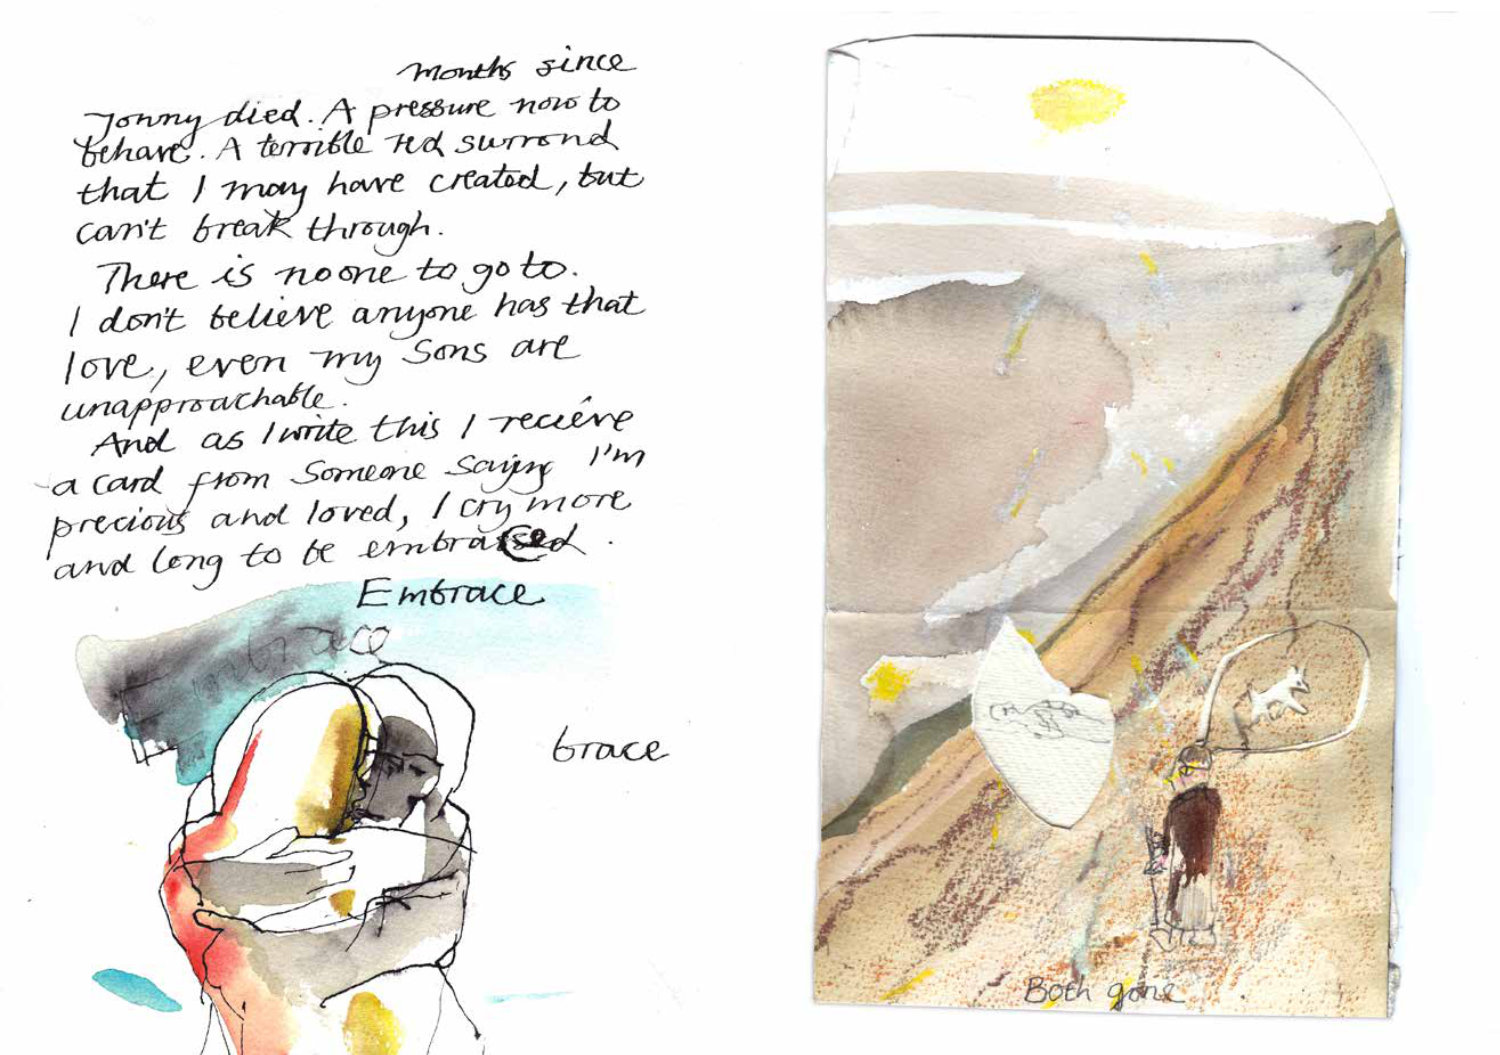 Months since
Jonny died. A pressure now to
behave. A terrible red surrond
that I may have created, but
can't break through.
There is no one to go to.
I don't believe anyone has that
love, even my Sons are
unapproachable.
And as I write this I recieve
a card from Someone Saying I'm
precious and loved, I cry more
and long to be embraced.
Embrace
embrace
brace
Both gone